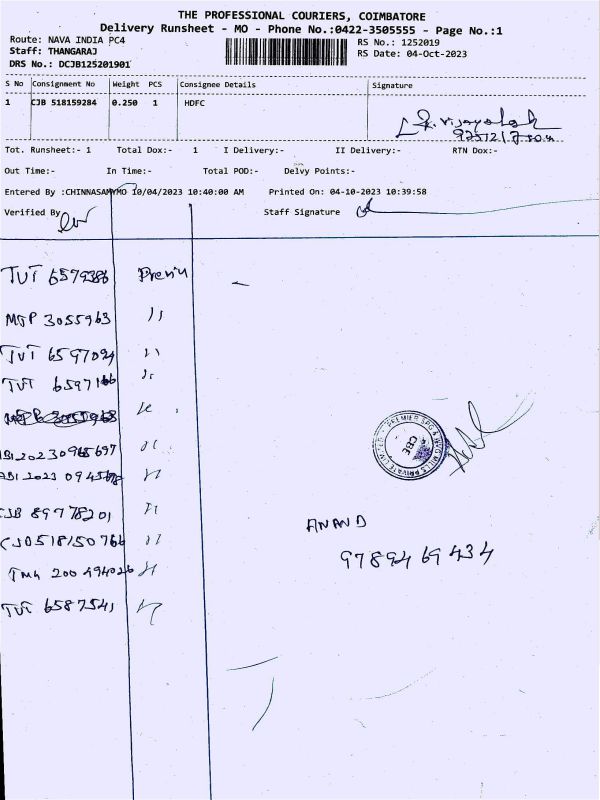 THE PROFESSIONAL COURIERS, COIMBATORE
Delivery Runsheet - MO - Phone No.:0422-3505555 - Page No.:1
Route: NAVA INDIA PC4
RS No.: 1252019
Staff: THANGARAJ
RS Date: 04-Oct-2023
DRS No.: DCJB125201901
S No Consignment No Weight PCS Consignee Details Signature
1 CJB 518159284 0.250 1 HDFC
Tot. Runsheet:- 1 Total Dox:- 1 I Delivery:- II Delivery:- RTN Dox:-
Out Time:- In Time:- Total POD:- Delvy Points:-
Entered By :CHINNASAMYMO 10/04/2023 10:40:00 AM Printed On: 04-10-2023 10:39:58
Verified By Staff Signature
TUT 6579386
MJP 3055963 11
TUT 6597094 11
TUT 6597166 11
CJB 89778201 11
CJB 518150766 11
TUT 6587541 11
PREMIER SPG & WVG MILLS PRIVATE LIMITED
CBE
ANAND
97894 69434